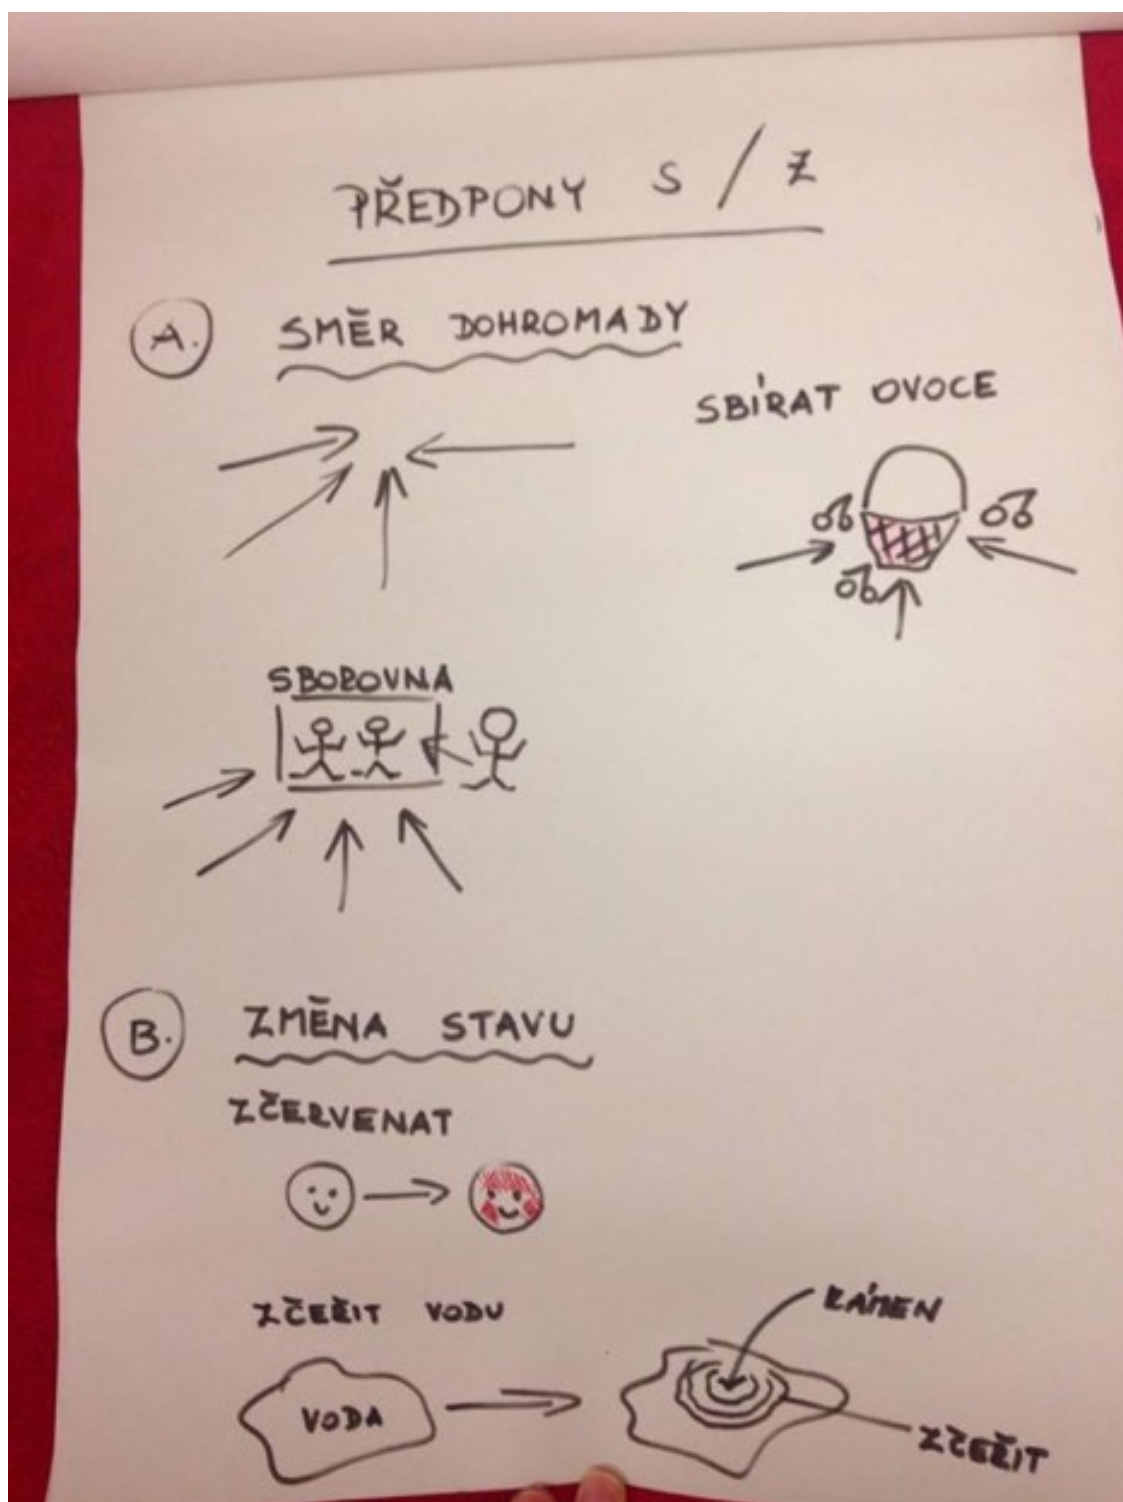 PŘEDPONY S / Z
A. SMĚR DOHROMADY
SBÍRAT OVOCE
SBOROVNA
B. ZMĚNA STAVU
ZČERVENAT
ZČEŘIT VODU
KÁMEN
VODA
ZČEŘIT